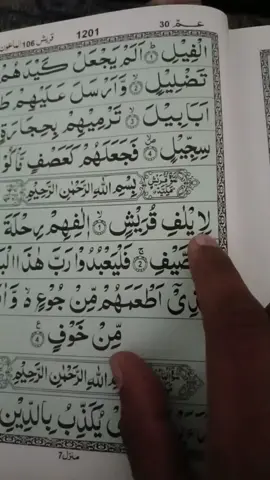 عـمّ 30
1201
قريش 106 الماعون
الۡفِيۡلِؕ ۱ اَلَمۡ يَجۡعَلۡ كَيۡدَهُمۡ
تَضۡلِيۡلٍۙ ۲ وَّاَرۡسَلَ عَلَيۡهِمۡ
اَبَابِيۡلَۙ ۳ تَرۡمِيۡهِمۡ بِحِجَارَةٍ
سِجِّيۡلٍۙ ۴ فَجَعَلَهُمۡ كَعَصۡفٍ مَّاۡكُوۡ
بِسۡمِ اللهِ الرَّحۡمٰنِ الرَّحِيۡمِ
لِاِيۡلٰفِ قُرَيۡشٍۙ ۱ اٖلٰفِهِمۡ رِحۡلَةَ
الصَّيۡفِۚ ۲ فَلۡيَعۡبُدُوۡا رَبَّ هٰذَا الۡبَ
اَطۡعَمَهُمۡ مِّنۡ جُوۡعٍ ۙ وَّاٰ
مِّنۡ خَوۡفٍ ۴
بِسۡمِ اللهِ الرَّحۡمٰنِ الرَّحِيۡمِ
يُكَذِّبُ بِالدِّيۡنِ
منزل 7